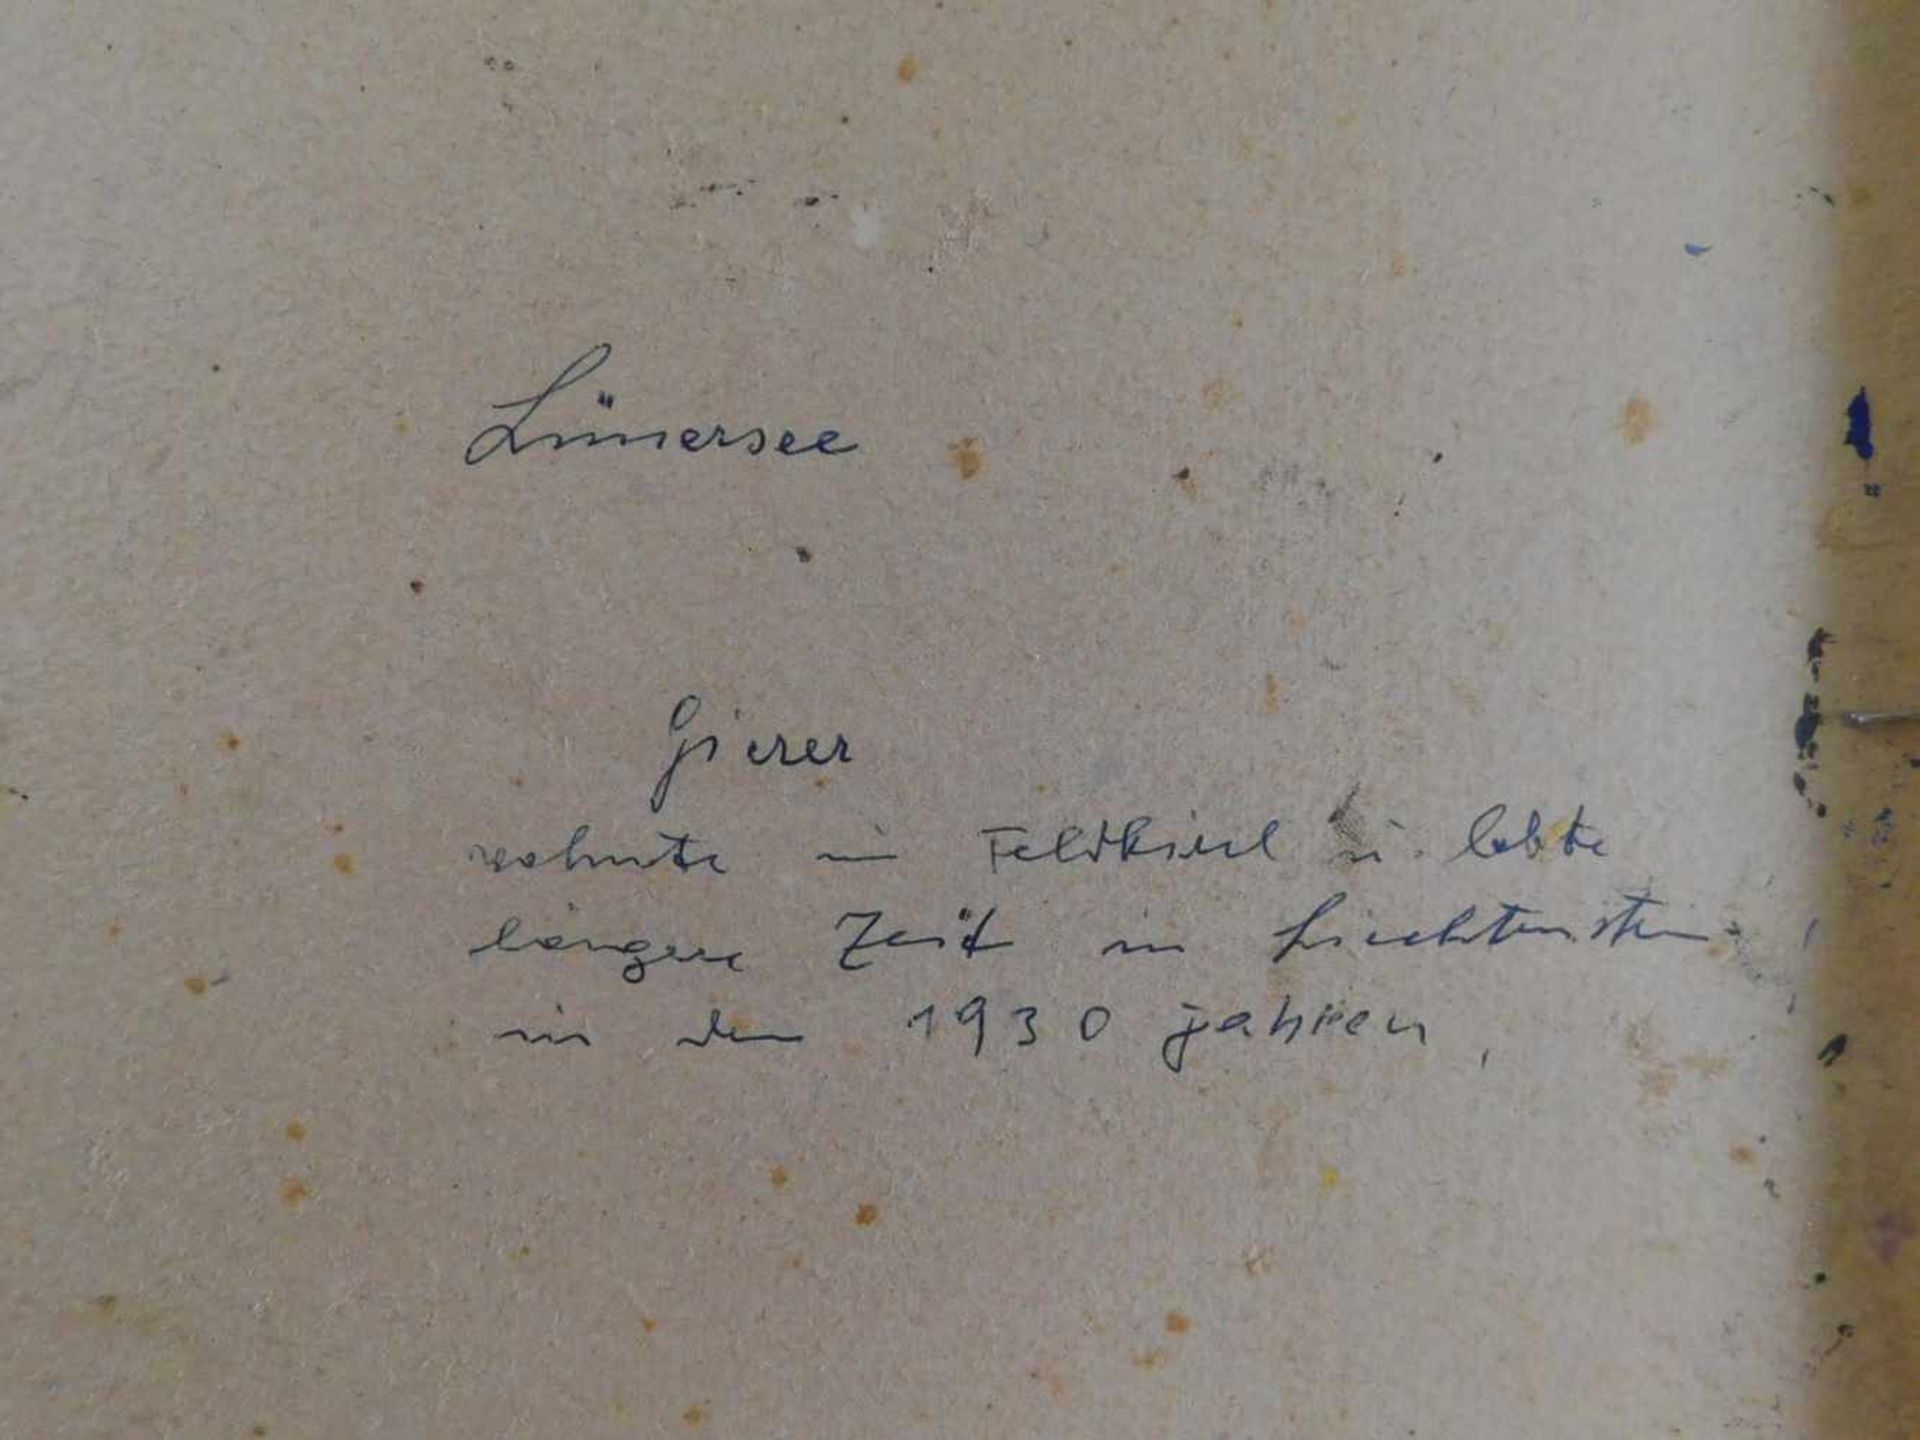 Lünersee
Gierer
wohnte in Feldkirch u. lebte
längere Zeit in Liechtenstein
in den 1930 jahren,